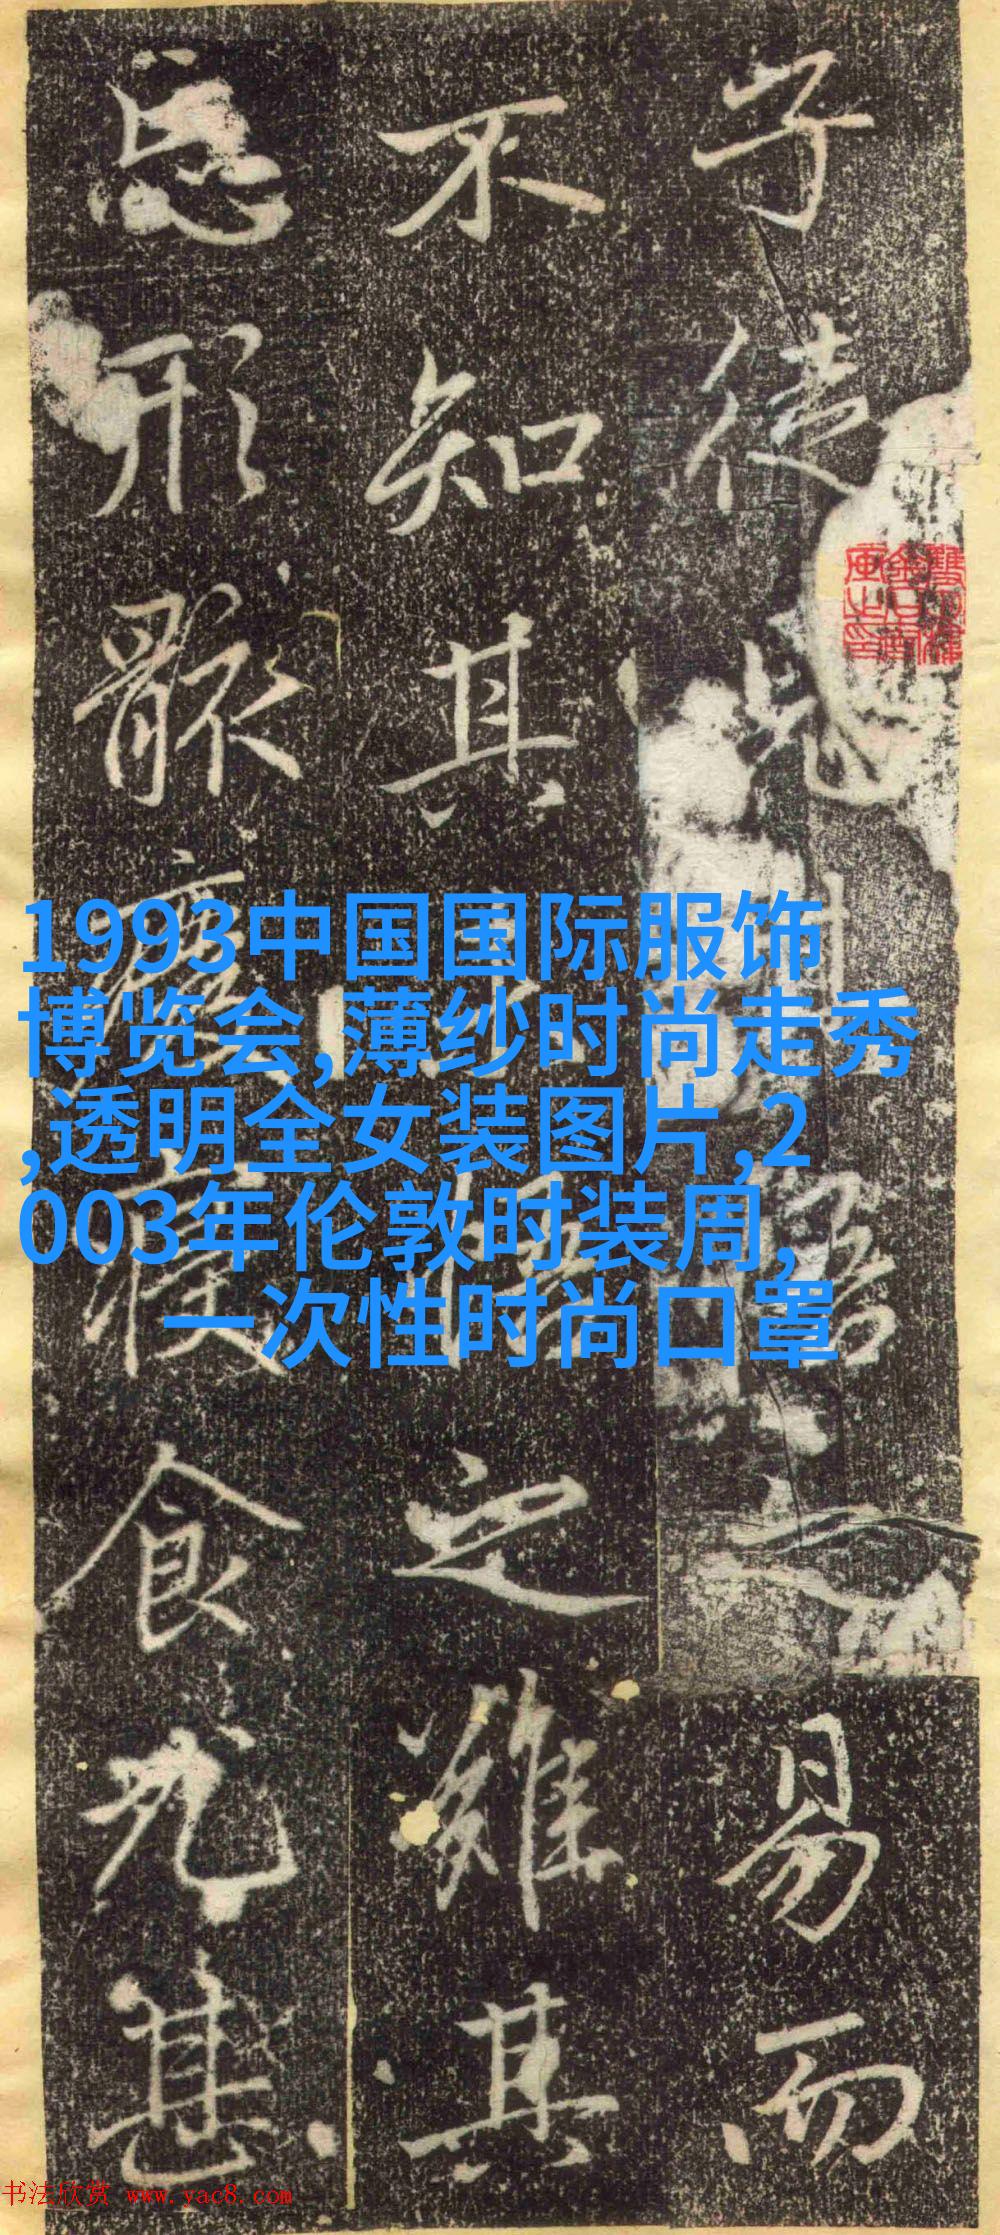 子徒見之易而
不知其之難其
忘形骸廢寢食尤甚
1993中国国际服饰
博览会,薄纱时尚走秀
,透明全女装图片,2
003年伦敦时装周,
一次性时尚口罩
书法欣赏 www.yac8.com